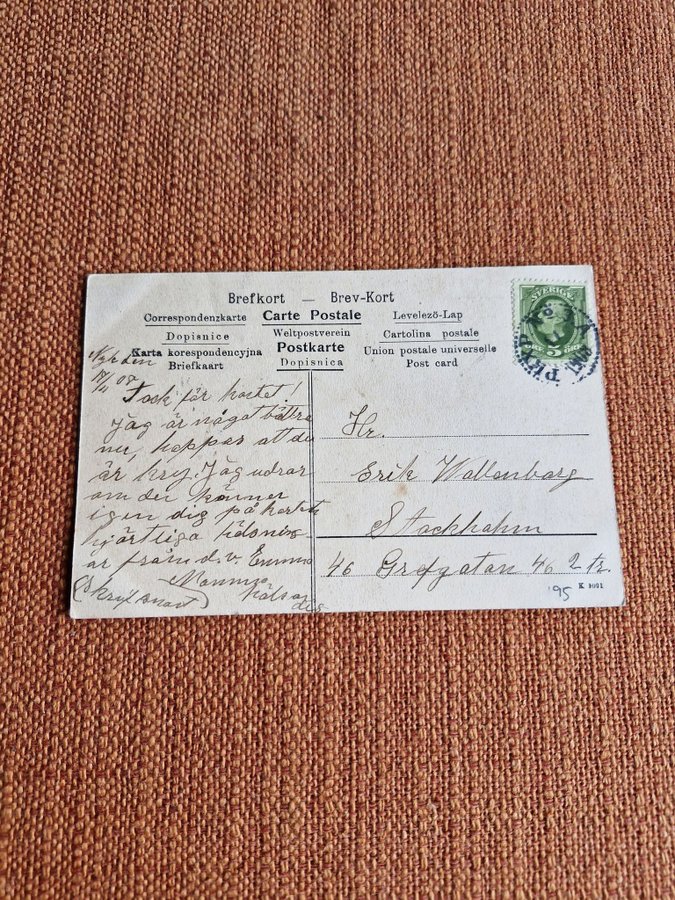 Brefkort — Brev-Kort
Correspondenzkarte Carte Postale Levelező-Lap
Dopisnice Weltpostverein Cartolina postale
Karta korespondencyjna Postkarte Union postale universelle
Briefkaart Dopisnica Post card
SVERIGE
5
PLK
08
Tack för kortet!
Jag är något bättre
nu, hoppas att du
är kry. Jag undrar
om du känner
igen dig på kortet
hjärtliga hälsning
ar från d. v. Emma
Mamma hälsar
(Skrif snart)
Hr.
Erik Wallenborg
Stockholm
46 Grefgatan 46 2 tr.
'95